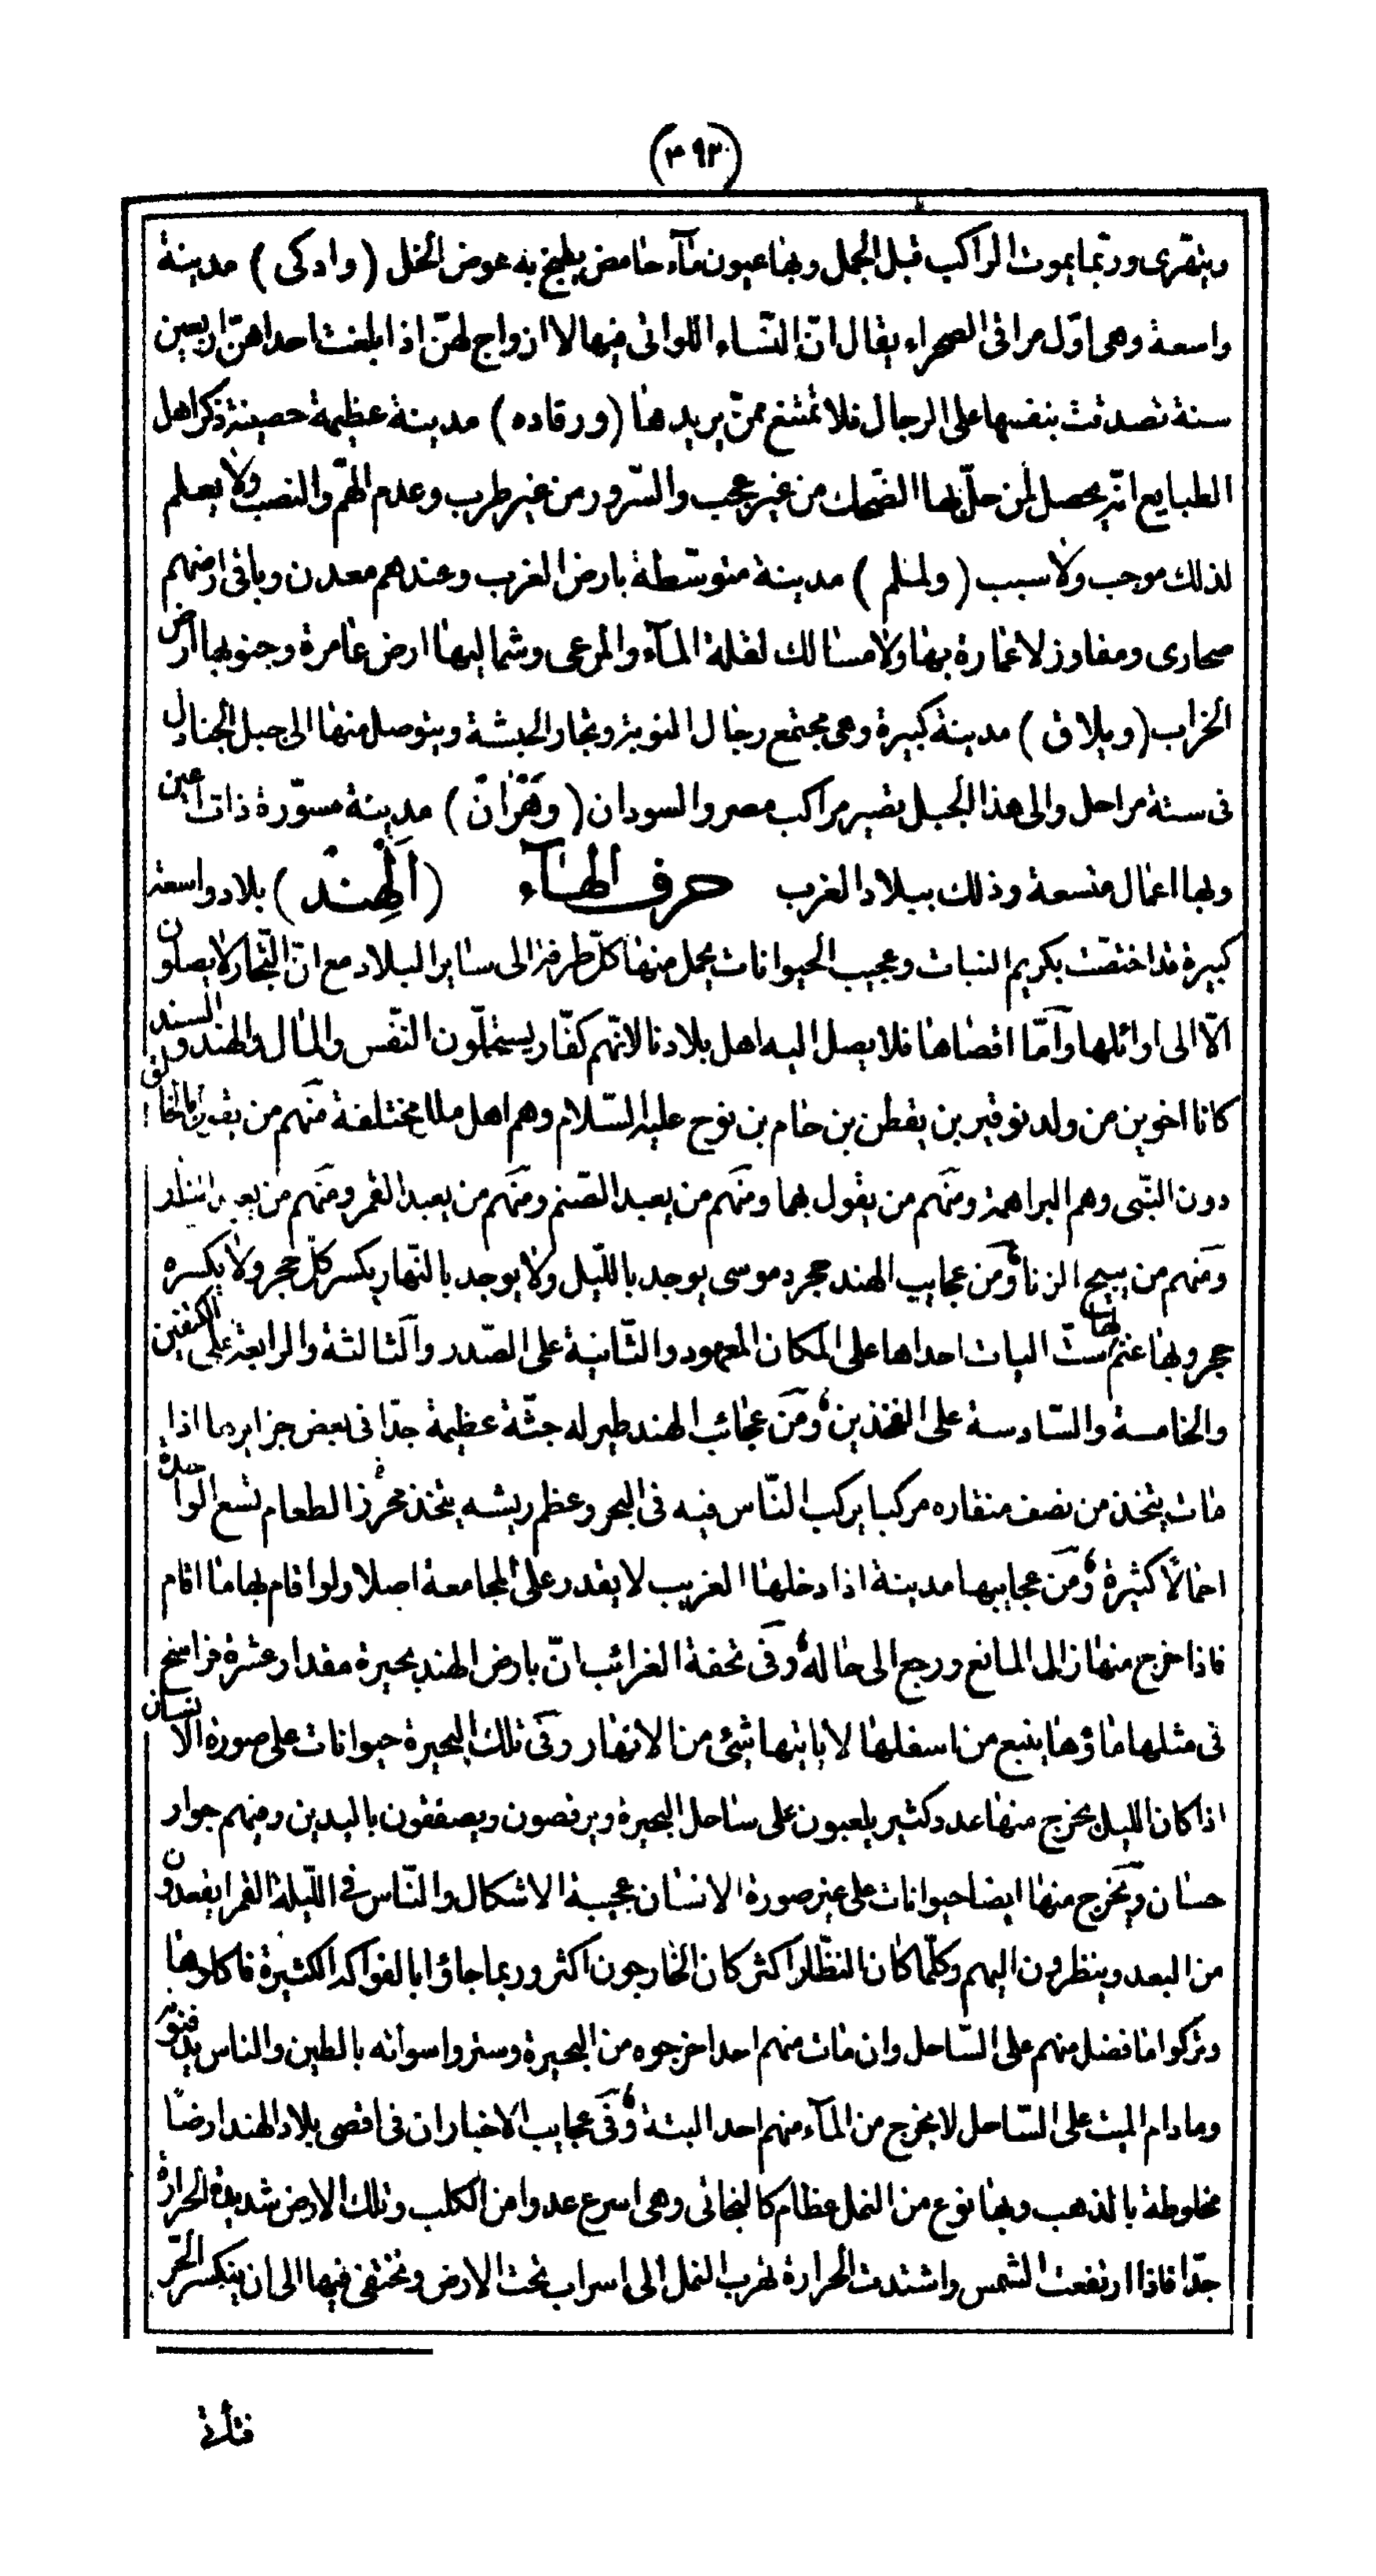 (٣٩٣)
ويتهرى وربما يموت الراكب قبل الجمل وبها عيون ماء حامض يطبخ به عوض الخل (وادكى) مدينة
واسعة وهى اوّل مراقى الصحراء يقال انّ النّساء اللواتى فيها لا ازواج لهنّ اذا بلغت احداهنّ اربعين
سنة تصدقت بنفسها على الرجال فلا تمتنع ممّن يريدها (ورقاده) مدينة عظيمة حصينة ذكر اهل
الطبايع انّه يحصل لمن حلّ بها الضحك من غير عجب والسّرور من غير طرب وعدم الهمّ والنصب ولا يعلم
لذلك موجب ولا سبب (ولملم) مدينة متوسّطة بارض الغرب وعندهم معدن وباقى ارضهم
صحارى ومفاوز لا عمارة بها ولا مسالك لقلة المآء والمرعى وشماليها ارض عامرة وجنوبها ارض
الخراب (وبلاق) مدينة كبيرة وهى مجتمع رجال النوبة وتجار الحبشة ويتوصل منها الى جبل الجنادل
فى ستة مراحل والى هذا الجبل تصير مراكب مصر والسودان (وَهْرَان) مدينة مسوّرة ذات اعين
ولها اعمال متسعة وذلك ببلاد الغرب حرف الهآء (اَلْهِنْد) بلاد واسعة
كبيرة قد اختصّت بكريم النبات وعجيب الحيوانات يحمل منها كلّ طرفة الى ساير البلاد مع انّ التّجار لا يصلون
الّا الى اوائلها وآمّا اقصاها فلا يصل اليه اهل بلادنا لانّهم كفّار يستحلّون النّفس والمال والهند والسند
كانا اخوين من ولد نوقير بن يقطن بن حام بن نوح عليه السّلام وهم اهل ملل مختلفة منهم من يقول بالخالق
دون النّبى وهم البراهمة ومنهم من يقول بهما ومنهم من يعبد الصّنم ومنهم من يعبد القمر ومنهم من يعبد النار
ومنهم من يبيح الزنا ومن عجايب الهند حجر دموسى يوجد باللّيل ولا يوجد بالنّهار يكسر كلّ حجر ولا يكسره
حجر وبها غنم لها ستّ اليات احداها على المكان المعهود والثّانية على الصّدر والثالثة والرابعة على الكتفين
والخامسة والسّادسة على الفخذين ومن عجائب الهند طير له جثّة عظيمة جدّا فى بعض جزايرها اذا
مات يتخذ من نصف منقاره مركبا يركب النّاس فيه فى البحر وعظم ريشه يتخذ محرز الطعام تسع الواحدة
احمالا كثيرة ومن عجايبها مدينة اذا دخلها الغريب لا يقدر على المجامعة اصلا ولو اقام بها ما اقام
فاذا خرج منها زال المانع ورجع الى حاله وفى تحفة الغرائب انّ بارض الهند بحيرة مقدار عشرة فراسخ
فى مثلها ماؤها ينبع من اسفلها لا ياتيها شئ من الانهار وفى تلك البحيرة حيوانات على صورة الانسان
اذا كان الليل يخرج منها عدد كثير يلعبون على ساحل البحيرة ويرقصون ويصفقون باليدين ومنهم جوار
حسان ويخرج منها ايضا حيوانات على غير صورة الانسان عجيبة الاشكال والنّاس فى اللّيلة القمرا يقعدون
من البعد وينظرون اليهم وكلّما كان النظّار اكثر كان الخارجون اكثر وربما جاؤا بالفواكه الكثيرة فاكلوها
وتركوا ما فضل منهم على السّاحل وان مات منهم احد اخرجوه من البحيرة وستروا سوأته بالطين والناس يدفنونه
وما دام الميت على السّاحل لا يخرج من المآء منهم احد البتة وفى عجايب الاخبار ان فى اقصى بلاد الهند ارضا
مخلوطة بالذهب وبها نوع من النمل عظام كالبخاتى وهى اسرع عدوا من الكلب وتلك الارض شديدة الحرارة
جدّا فاذا ارتفعت الشمس واشتدت الحرارة تهرب النمل الى اسراب تحت الارض وتختفى فيها الى ان ينكسر الحرّ
فتأتى